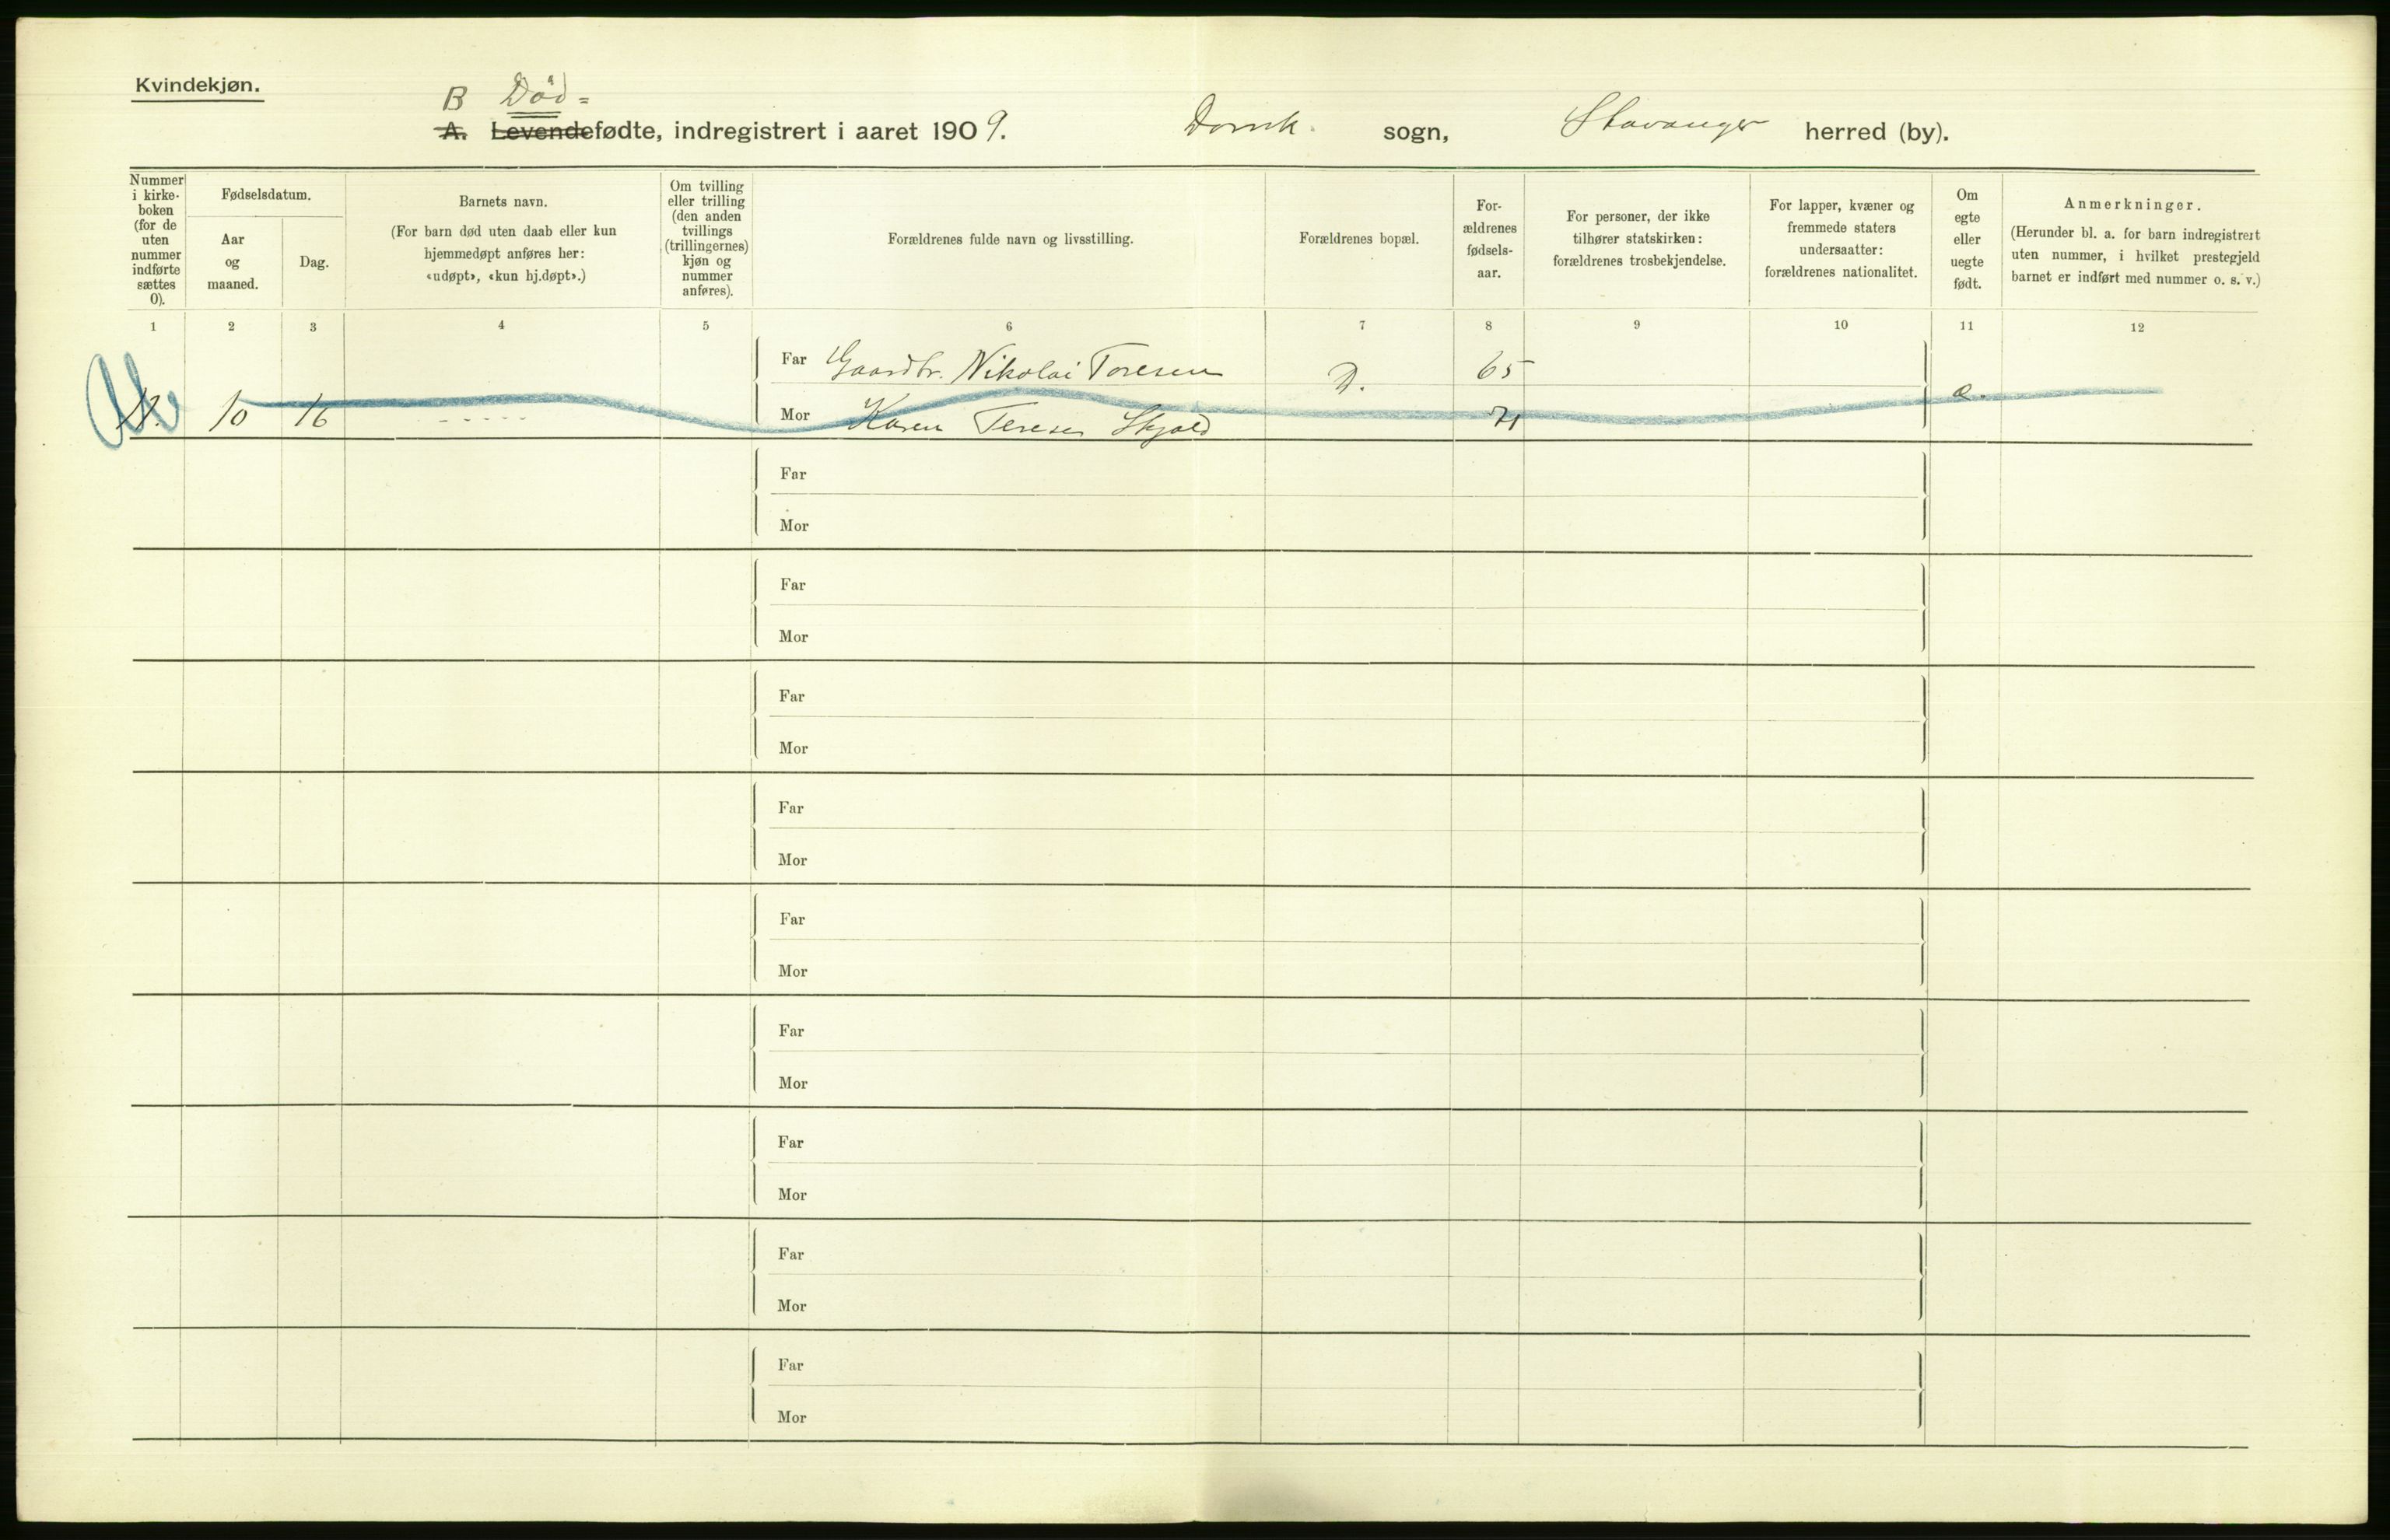 Kvindekjøn.
B Død=
A. Levendefødte, indregistrert i aaret 1909. Domk. sogn, Stavanger herred (by).
Nummer i kirke-boken (for de uten nummer indførte sættes 0).
Fødselsdatum.
Aar og maaned.
Dag.
Barnets navn.
(For barn død uten daab eller kun hjemmedøpt anføres her: «udøpt», «kun hj.døpt».)
Om tvilling eller trilling (den anden tvillings (trillingernes) kjøn og nummer anføres).
Forældrenes fulde navn og livsstilling.
Forældrenes bopæl.
For-ældrenes fødsels-aar.
For personer, der ikke tilhører statskirken: forældrenes trosbekjendelse.
For lapper, kvæner og fremmede staters undersaatter: forældrenes nationalitet.
Om egte eller uegte født.
Anmerkninger.
(Herunder bl. a. for barn indregistrert uten nummer, i hvilket prestegjeld barnet er indført med nummer o. s. v.)
1 2 3 4 5 6 7 8 9 10 11 12
Far Gaardbr. Nikolai Toresen D. 65
10 16 - - - - - Mor Karen Terese Skjold 71 æ.
Far
Mor
Far
Mor
Far
Mor
Far
Mor
Far
Mor
Far
Mor
Far
Mor
Far
Mor
Far
Mor